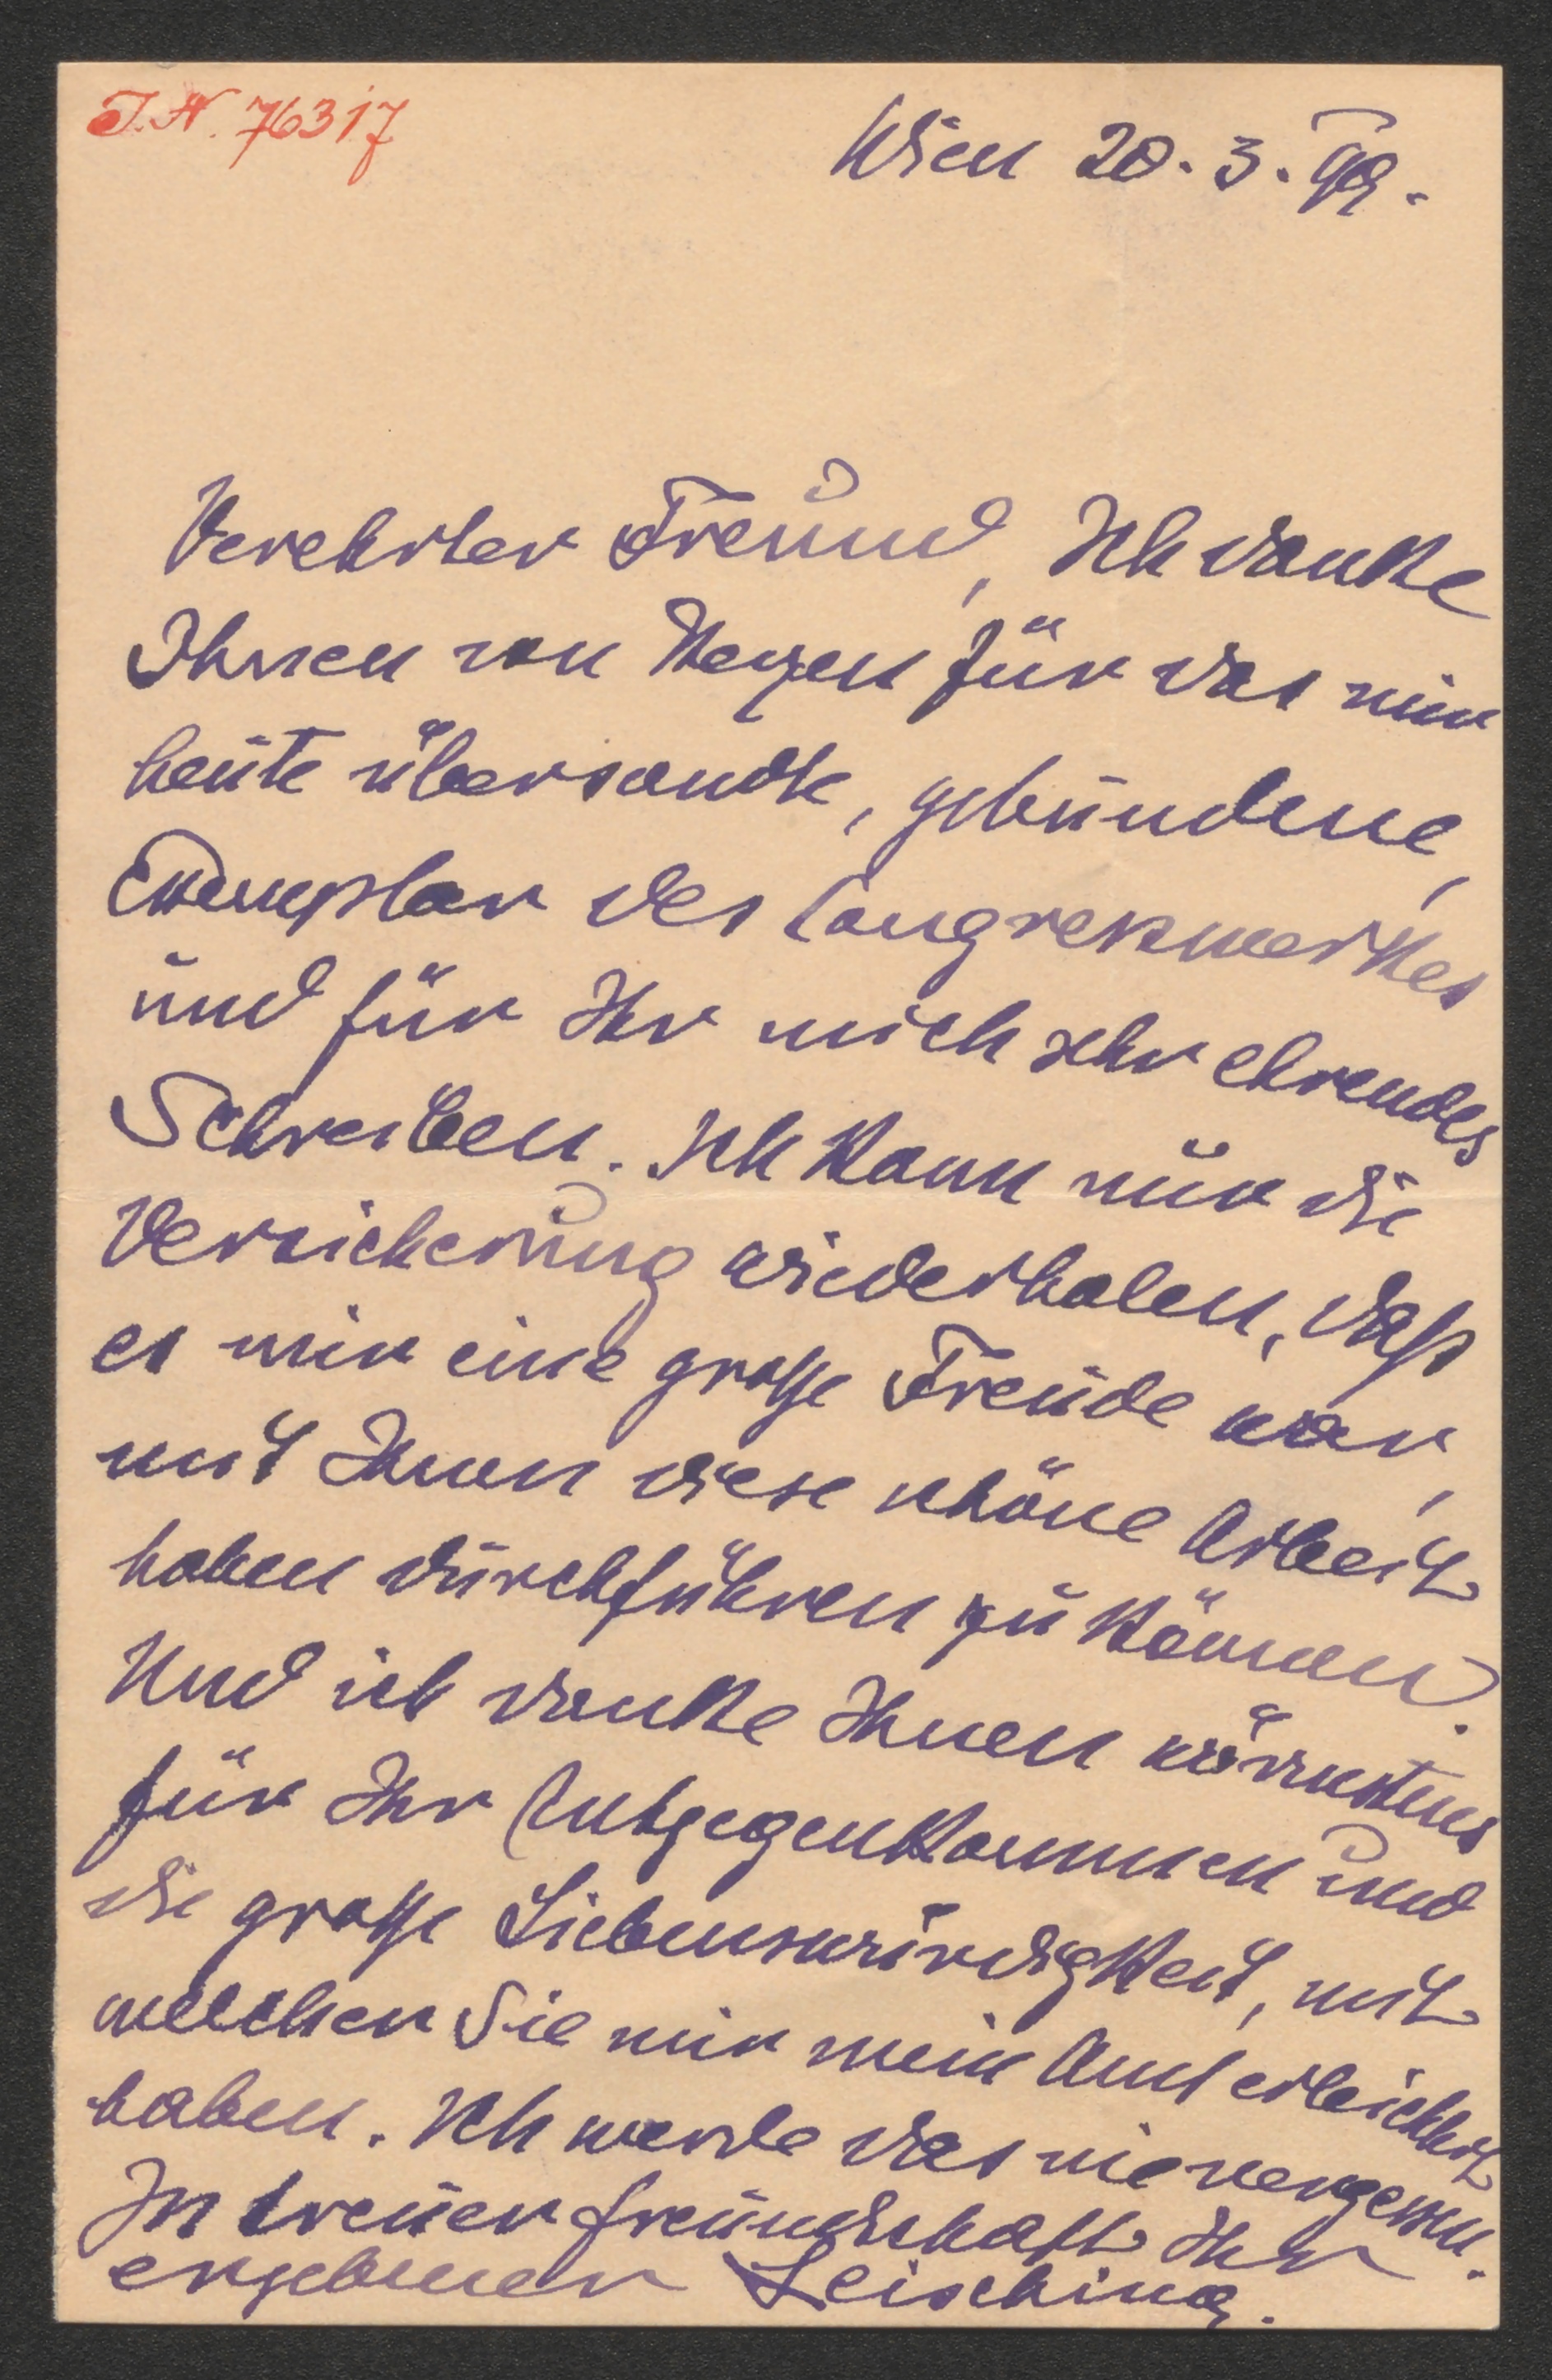 I.N. 76317
Wien 20. 3. 99.
Verehrter Freund, Ich danke
Ihnen von Herzen für das mir
heute übersandte, gebundene,
Exemplar des Congresswerkes
und für Ihr mich sehr ehrendes
Schreiben. Ich kann nur die
Versicherung wiederholen, daß
es mir eine große Freude war,
mit Ihnen diese schöne Arbeit
haben durchführen zu können.
Und ich danke Ihnen wärmstens
für Ihr Entgegenkommen und
die große Liebenswürdigkeit, mit
welcher Sie mir mein Amt erleichtert
haben. Ich werde das nie vergessen.
In treuer Freundschaft Ihr
ergebener Leisching.